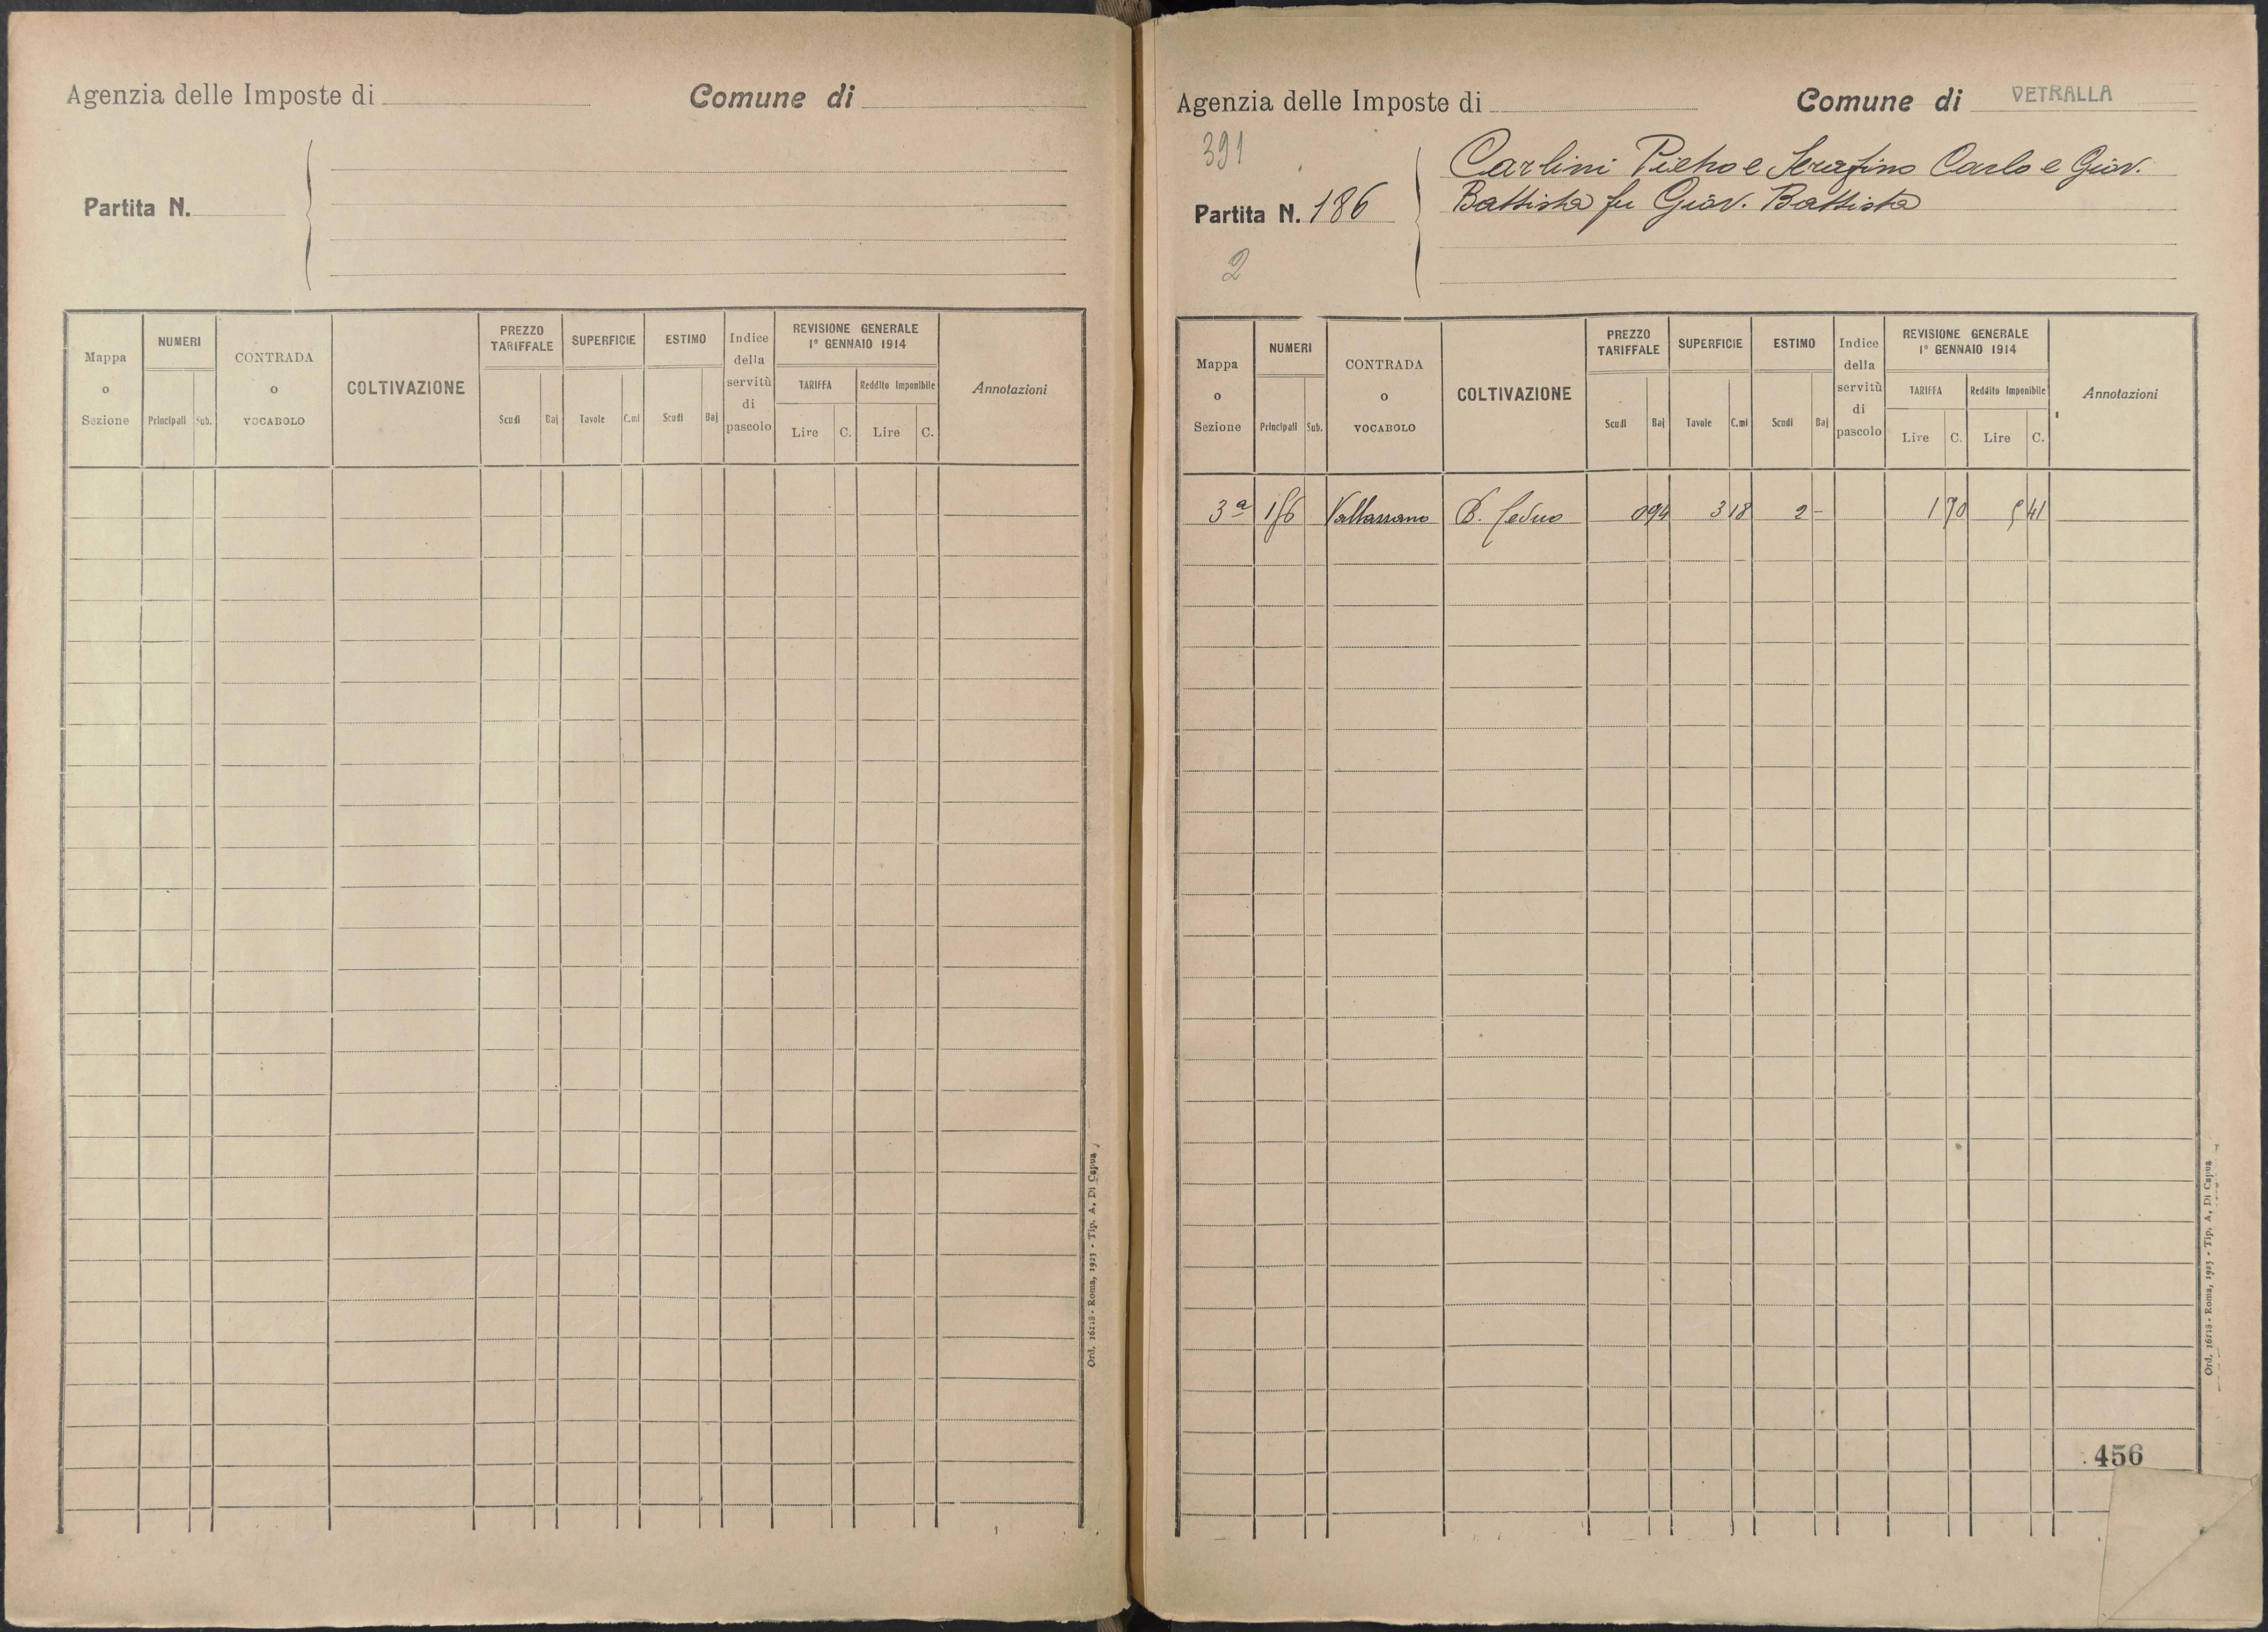 Agenzia delle Imposte di
Comune di
Partita N.
Mappa o Sezione
NUMERI
Principali Sub.
CONTRADA o VOCABOLO
COLTIVAZIONE
PREZZO TARIFFALE
Scudi Baj
SUPERFICIE
Tavole C.mi
ESTIMO
Scudi Baj
Indice della servitù di pascolo
REVISIONE GENERALE
1° GENNAIO 1914
TARIFFA
Lire C.
Reddito Imponibile
Lire C.
Annotazioni
Ord. 16118 - Roma, 1923 - Tip. A. Di Capua
Agenzia delle Imposte di
Comune di VETRALLA
391
Partita N. 186
2
Carlini Pietro e Serafino Carlo e Giov.
Battista fu Giov. Battista
Mappa o Sezione
NUMERI
Principali Sub.
CONTRADA o VOCABOLO
COLTIVAZIONE
PREZZO TARIFFALE
Scudi Baj
SUPERFICIE
Tavole C.mi
ESTIMO
Scudi Baj
Indice della servitù di pascolo
REVISIONE GENERALE
1° GENNAIO 1914
TARIFFA
Lire C.
Reddito Imponibile
Lire C.
Annotazioni
3ª B. Ceduo 0 94 3 18 2 - 1 70 5 41
Ord. 16118 - Roma, 1923 - Tip. A. Di Capua
456